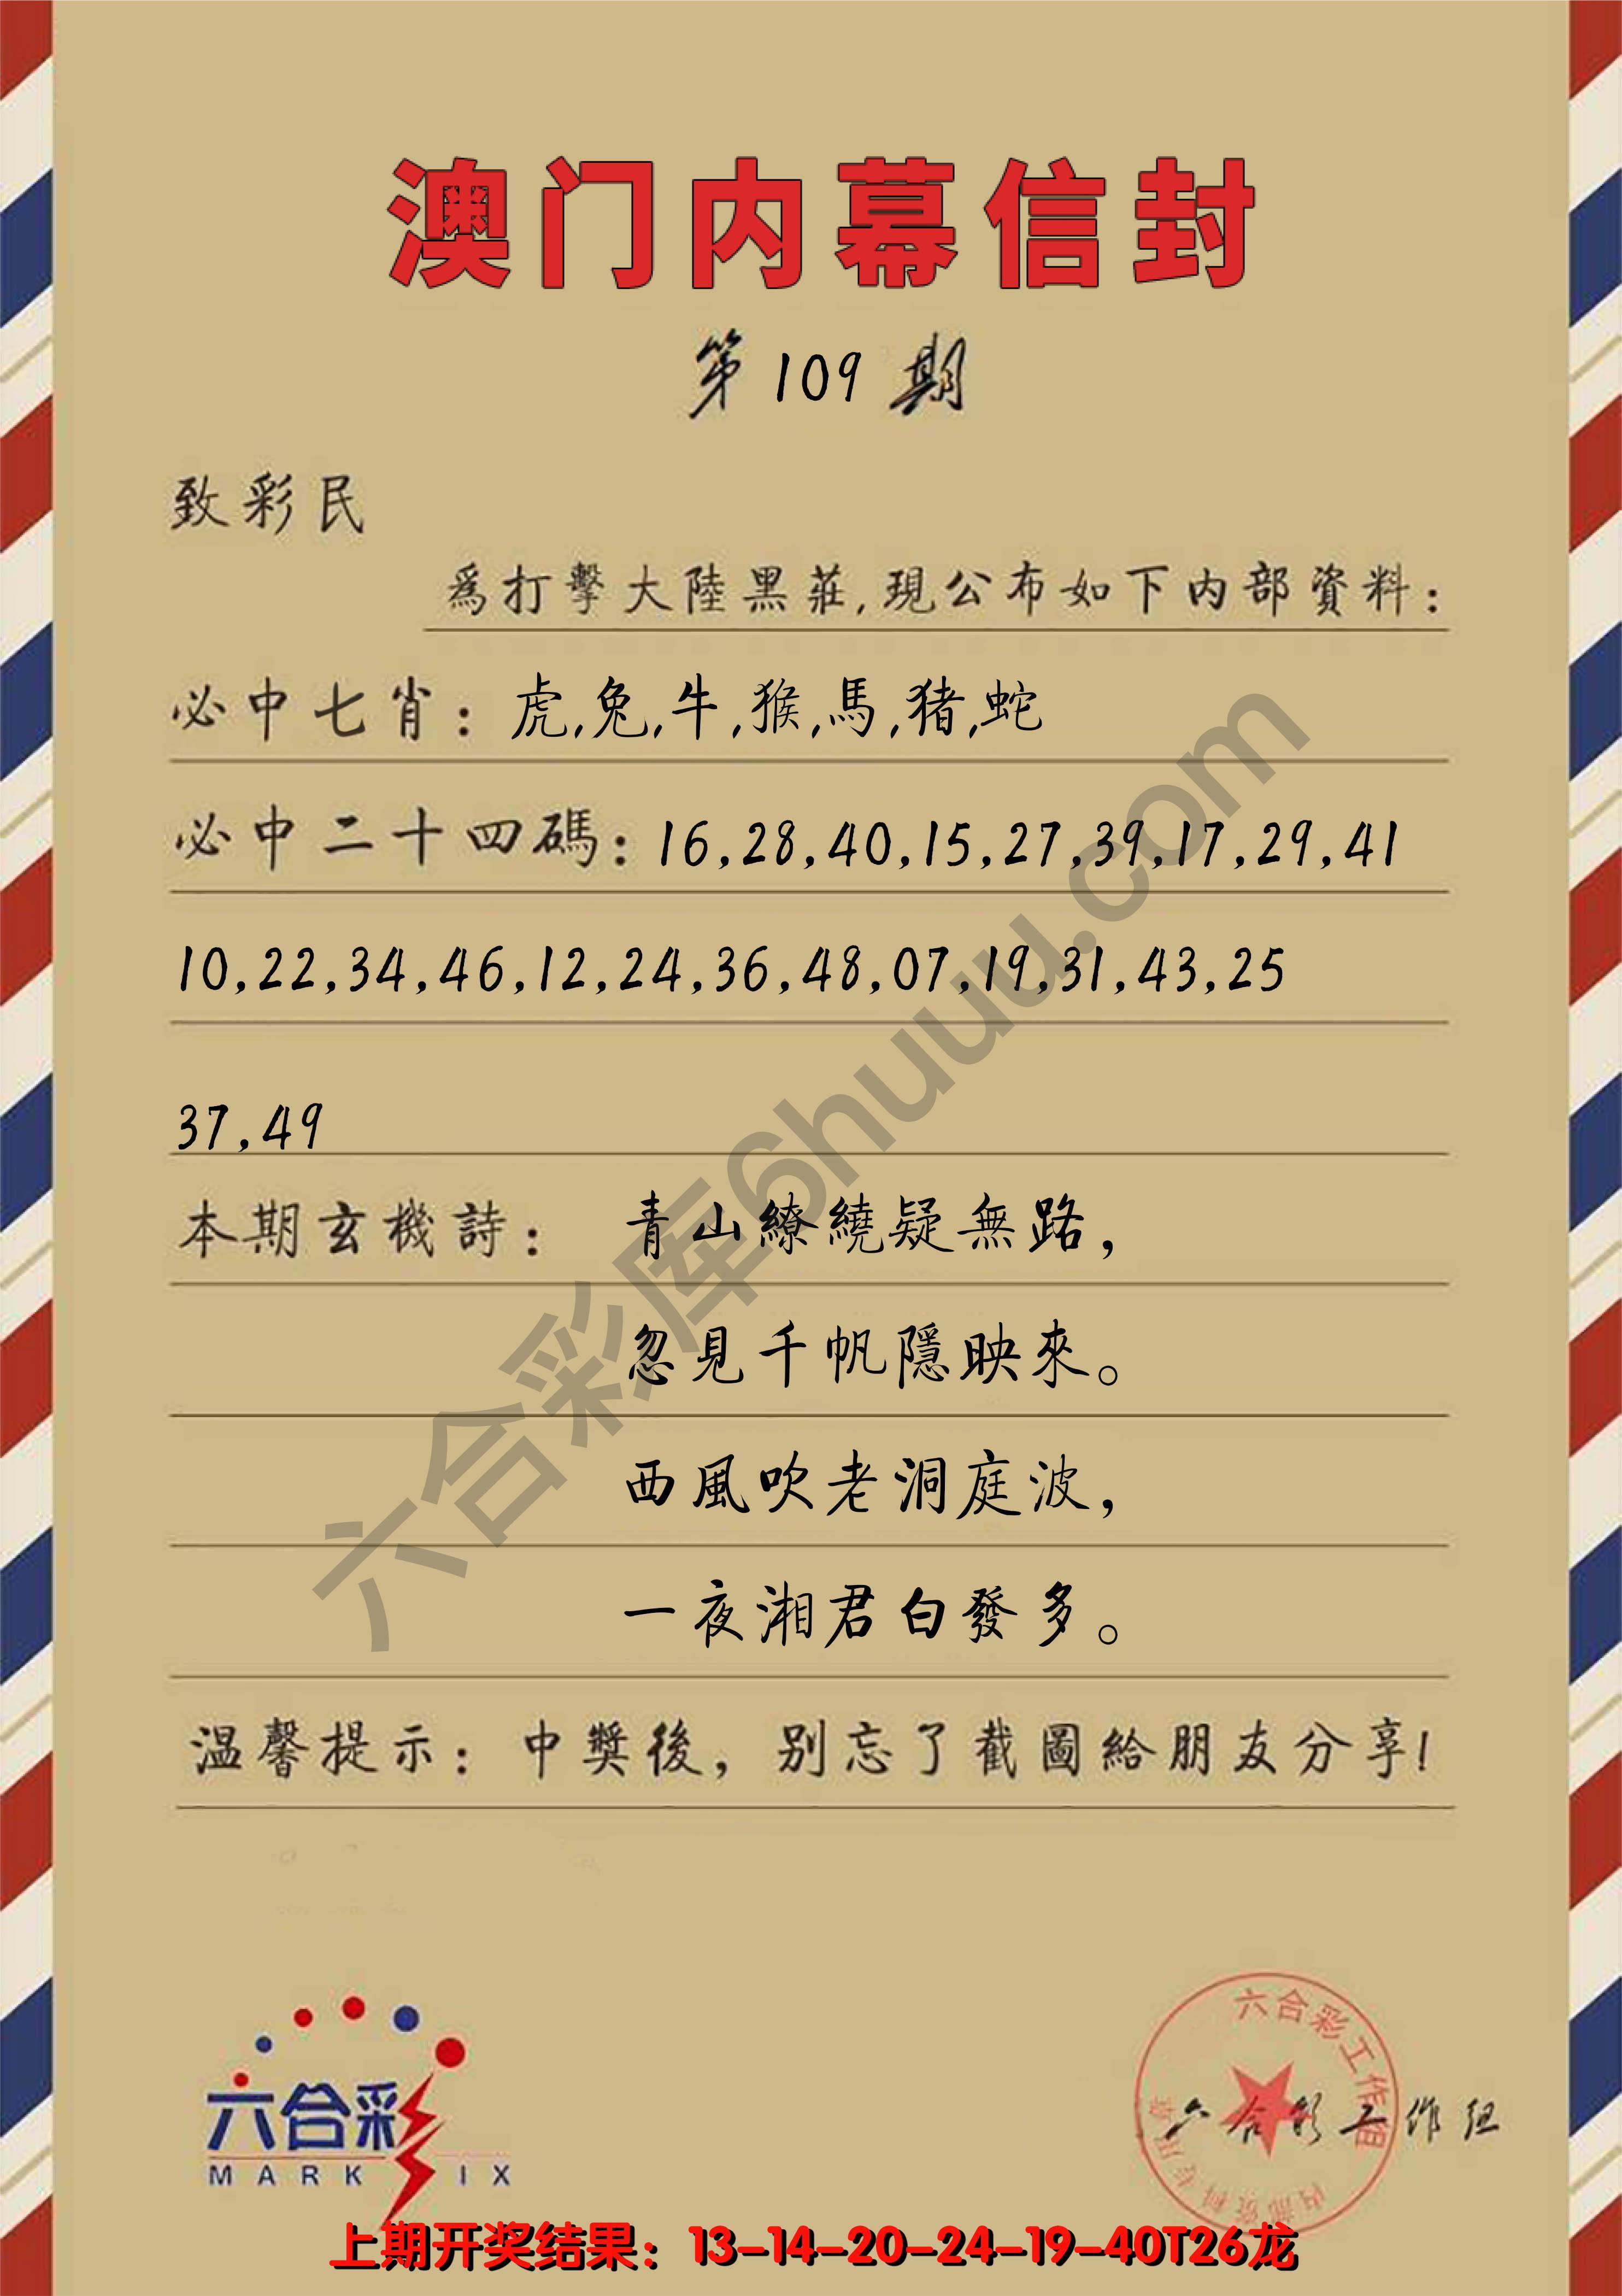 澳门内幕信封
第 109 期
致彩民
為打擊大陸黑莊,現公布如下内部資料:
必中七肖: 虎,兔,牛,猴,馬,猪,蛇
必中二十四碼: 16,28,40,15,27,39,17,29,41
10,22,34,46,12,24,36,48,07,19,31,43,25
37,49
本期玄機詩: 青山繚繞疑無路,
忽見千帆隱映來。
西風吹老洞庭波,
一夜湘君白發多。
温馨提示: 中獎後, 别忘了截圖給朋友分享!
六合彩库6huuu.com
六合彩
MARK SIX
六合彩工作组
内部资料专用章
六合彩工作组
上期开奖结果: 13-14-20-24-19-40T26龙